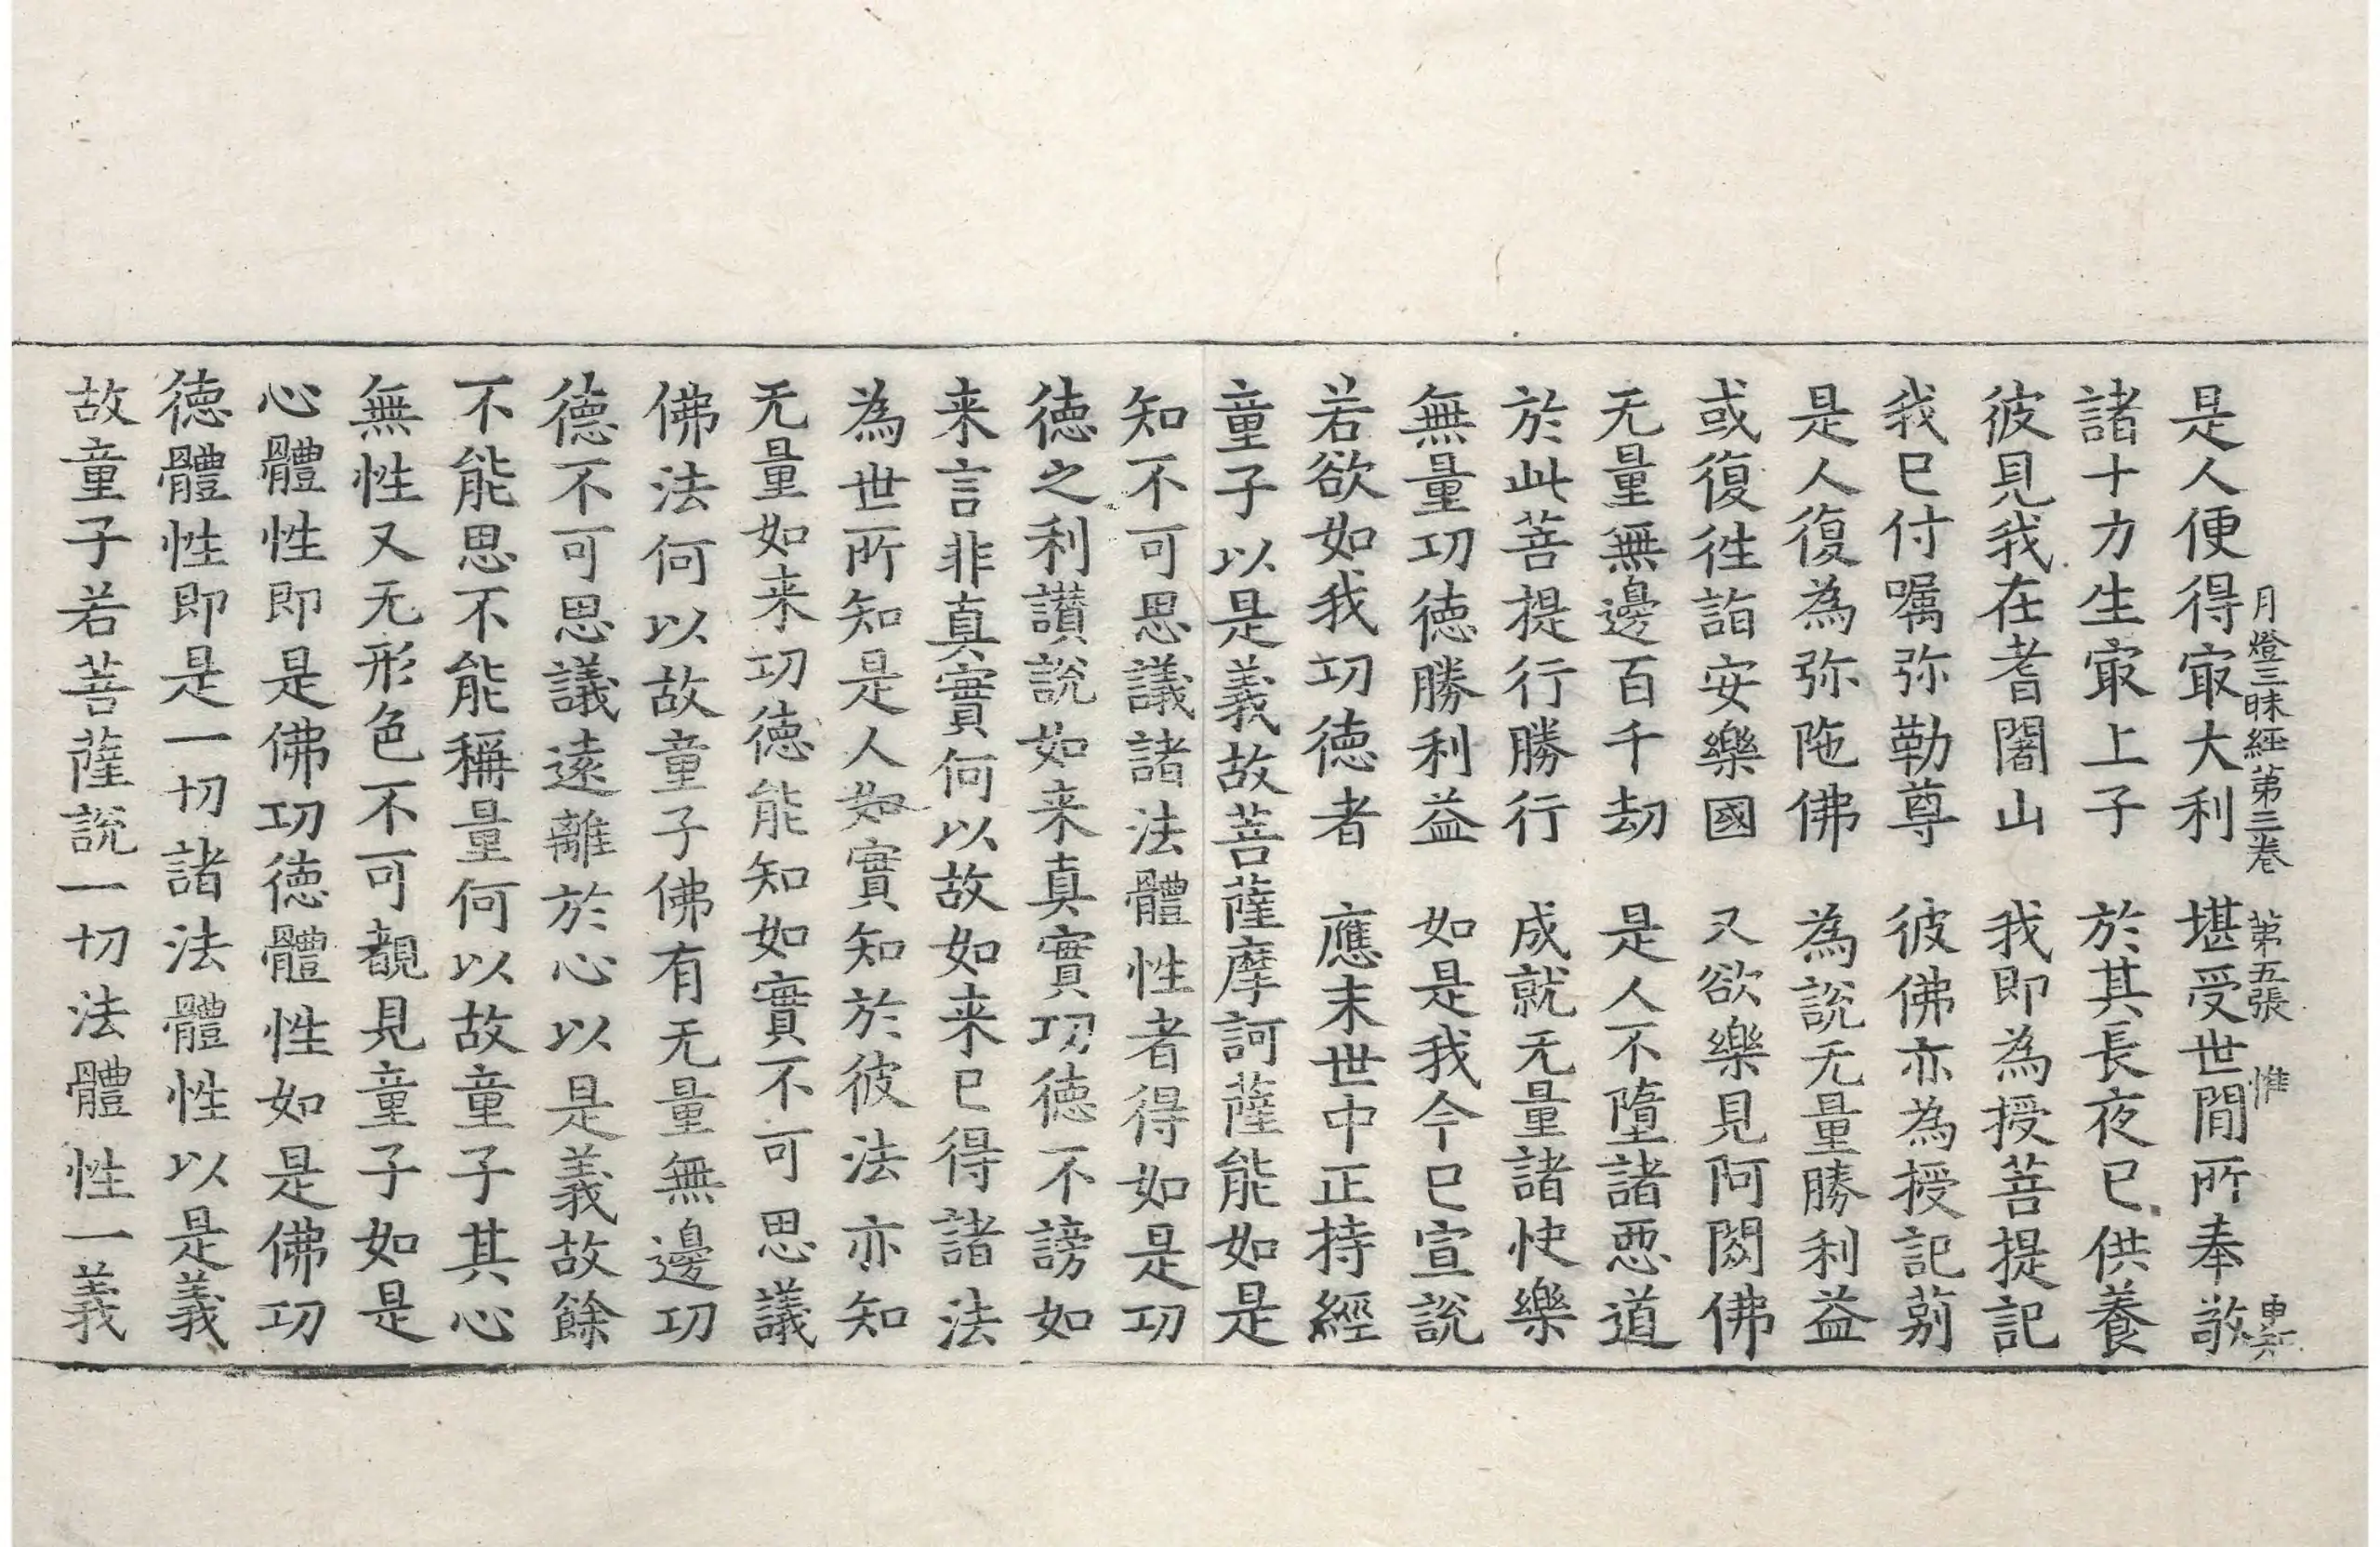 月燈三昧經第三卷　第五張　惟　申知
是人便得㝡大利　堪受世間所奉敬
諸十力生㝡上子　於其長夜已供養
彼見我在耆闍山　我即為授菩提記
我已付嘱弥勒尊　彼佛亦為授記莂
是人復為弥陁佛　為說无量勝利益
或復徃詣安樂國　又欲樂見阿閦佛
无量無邊百千劫　是人不墮諸惡道
於此菩提行勝行　成就无量諸快樂
無量功徳勝利益　如是我今已宣說
若欲如我功徳者　應末世中正持經
童子以是義故菩薩摩訶薩能如是
知不可思議諸法體性者得如是功
徳之利讃說如来真實功徳不謗如
来言非真實何以故如来已得諸法
為世所知是人如實知於彼法亦知
无量如来功徳能知如實不可思議
佛法何以故童子佛有无量無邊功
德不可思議遠離於心以是義故餘
不能思不能稱量何以故童子其心
無性又无形色不可覩見童子如是
心體性即是佛功徳體性如是佛功
徳體性即是一切諸法體性以是義
故童子若菩薩說一切法體性一義